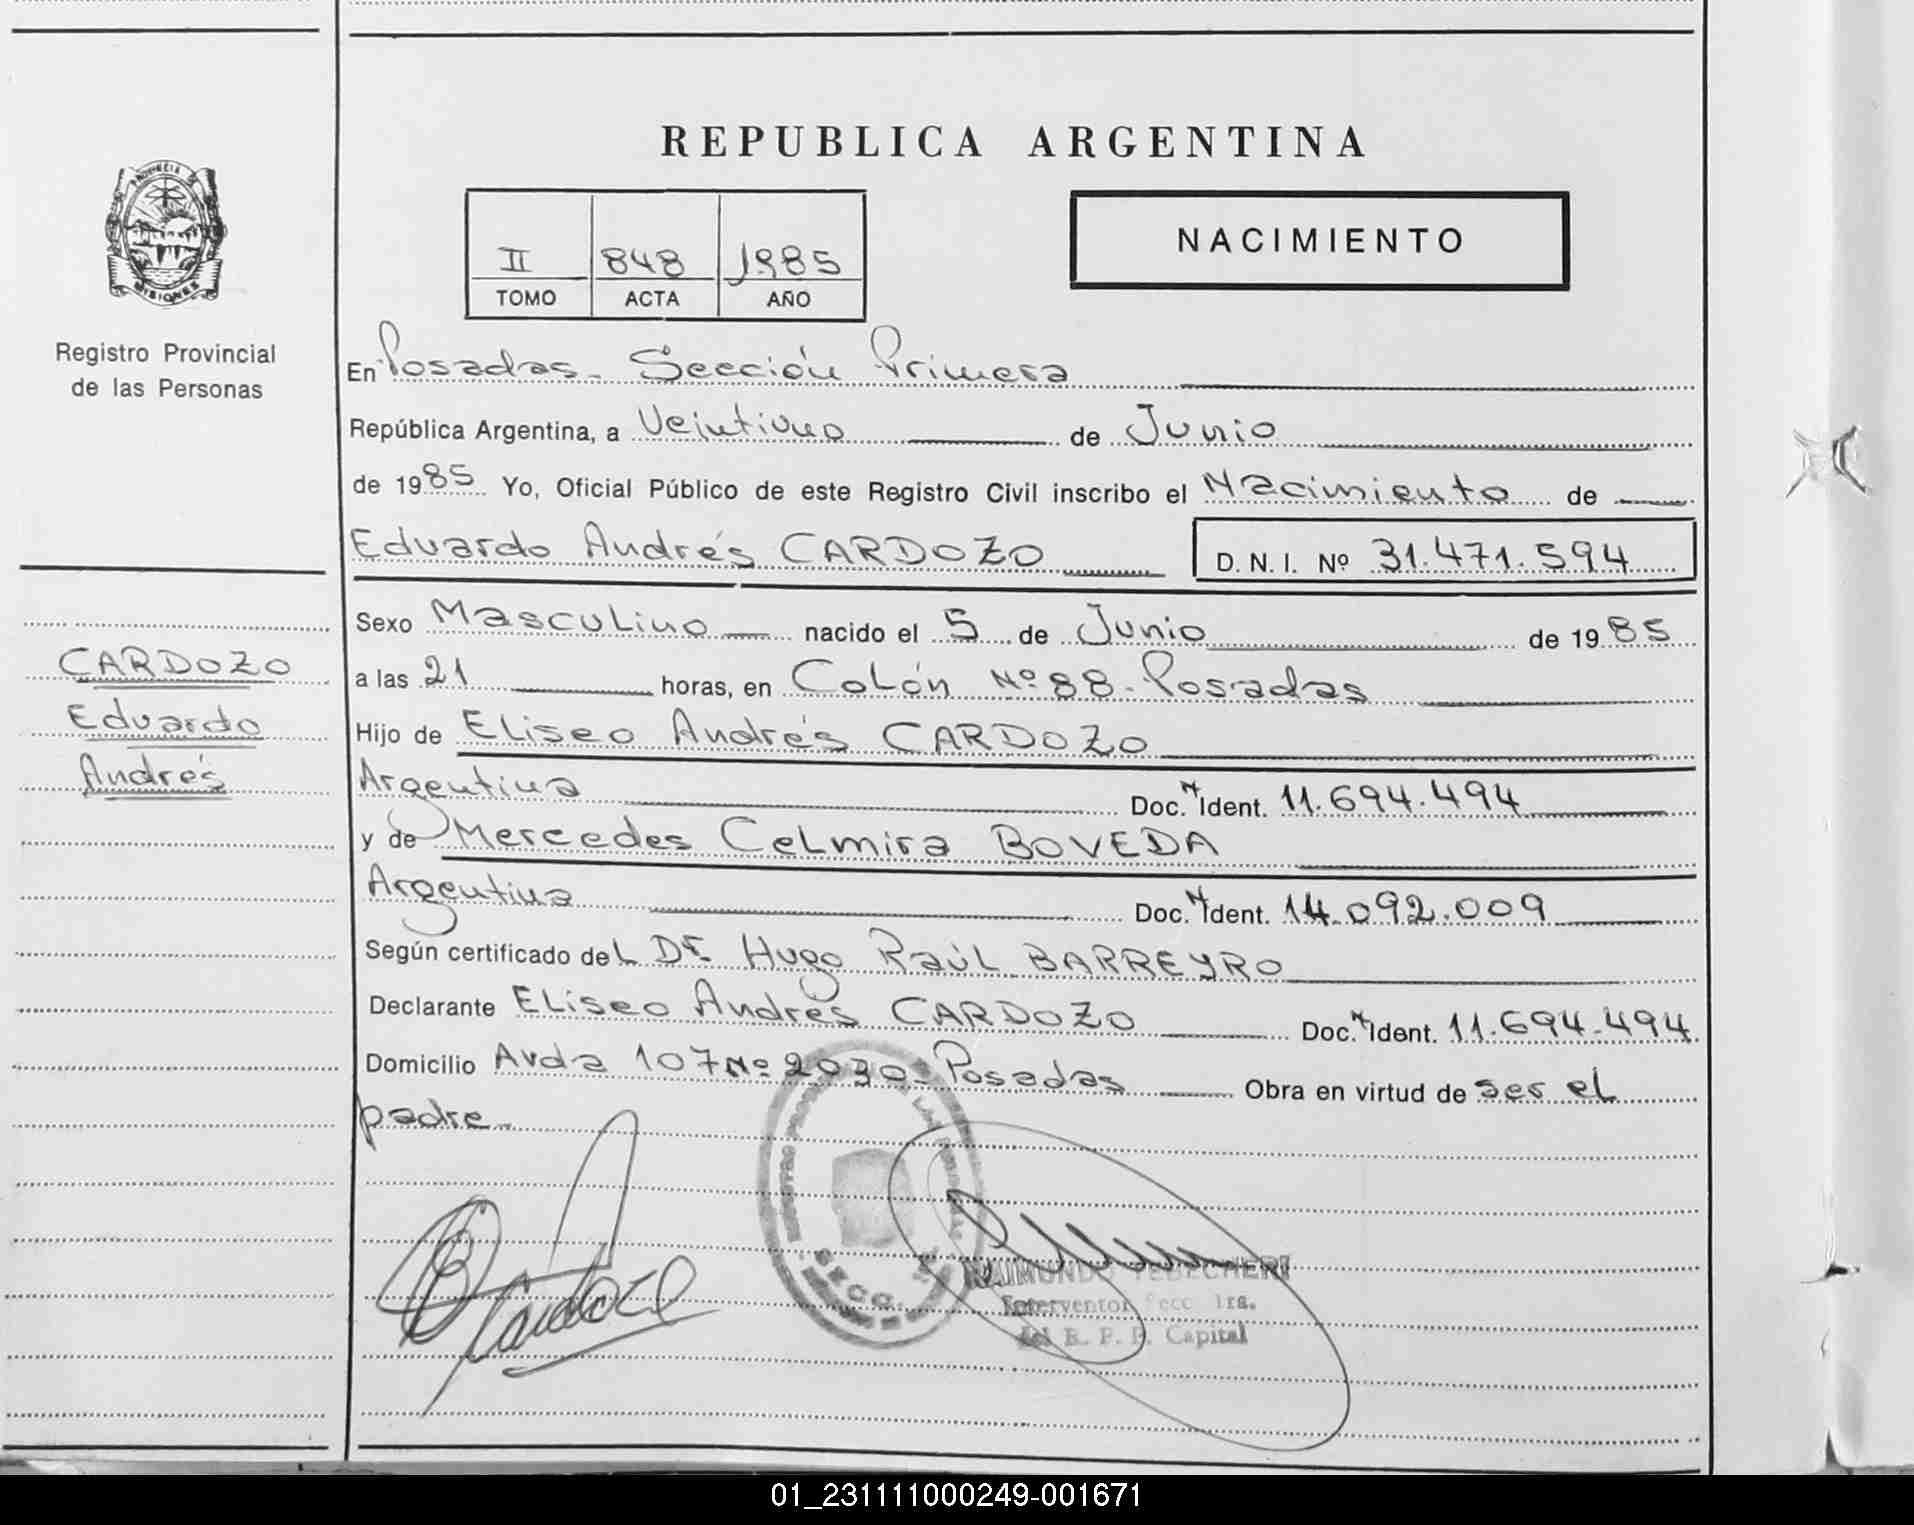 REPUBLICA ARGENTINA
PROVINCIA DE MISIONES
Registro Provincial
de las Personas
II 848 1985
TOMO ACTA AÑO
NACIMIENTO
En Posadas - Sección Primera
República Argentina, a Veintiuno de Junio
de 1985 Yo, Oficial Público de este Registro Civil inscribo el Nacimiento de
Eduardo Andrés CARDOZO D. N. I. Nº 31.471.594
CARDOZO
Eduardo
Andrés
Sexo Masculino nacido el 5 de Junio de 1985
a las 21 horas, en Colón Nº 88 - Posadas
Hijo de Eliseo Andrés CARDOZO
Argentina Doc. N. Ident. 11.694.494
y de Mercedes Celmira BOVEDA
Argentina Doc. N. Ident. 14.092.009
Según certificado del Dr. Hugo Raúl BARREYRO
Declarante Eliseo Andrés CARDOZO Doc. N. Ident. 11.694.494
Domicilio Avda 107 Nº 2030 - Posadas Obra en virtud de ser el
padre.
Cardozo
SECC.
RAIMUNDO YEBECHERI
Interventor Secc. 1ra.
del R. P. P. Capital
01_231111000249-001671